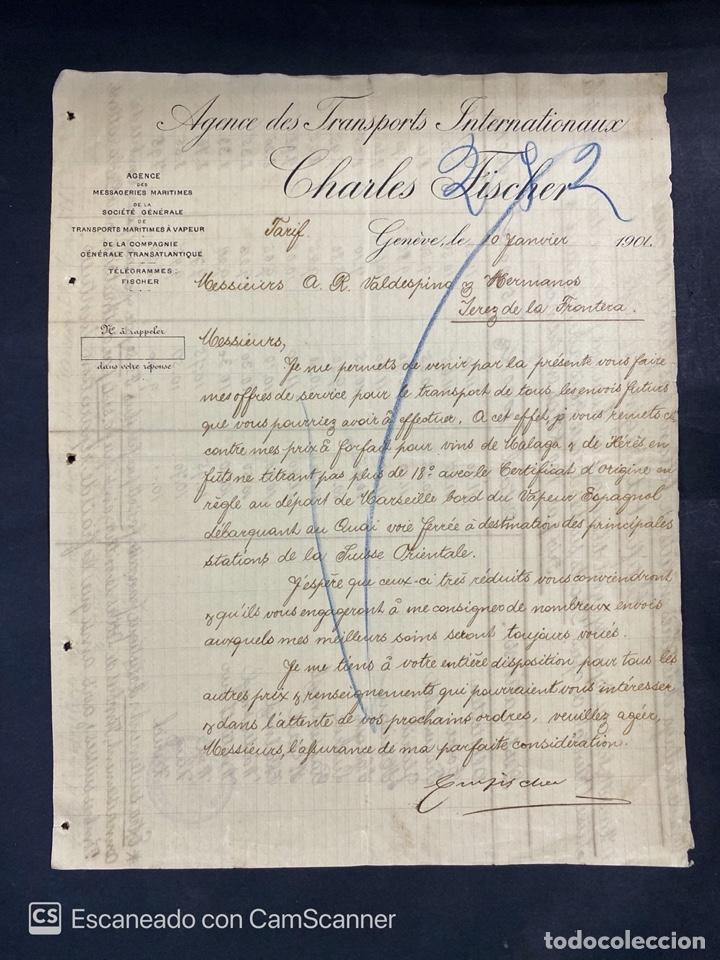 Agence des Transports Internationaux
Charles Fischer
AGENCE
DES
MESSAGERIES MARITIMES
DE LA
SOCIÉTÉ GÉNÉRALE
DE
TRANSPORTS MARITIMES À VAPEUR
DE LA COMPAGNIE
GÉNÉRALE TRANSATLANTIQUE
TÉLÉGRAMMES:
FISCHER
Tarif.
Genève, le 10 Janvier 1901.
Messieurs A. R. Valdespino & Hermanos
Jerez de la Frontera.
No. à rappeler
dans votre réponse
Messieurs,
Je me permets de venir par la présente vous faire
mes offres de service pour le transport de tous les envois futurs
que vous pourriez avoir à effectuer. A cet effet, je vous remets ci
contre mes prix à forfait pour vins de Malaga & de Xérès, en
fûts ne titrant pas plus de 18° avec le Certificat d'origine en
règle au départ de Marseille bord du Vapeur Espagnol
débarquant au Quai voie ferrée à destination des principales
stations de la Suisse Orientale.
J'espère que ceux-ci très réduits vous conviendront
& qu'ils vous engageront à me consigner de nombreux envois
auxquels mes meilleurs soins seront toujours voués.
Je me tiens à votre entière disposition pour tous les
autres prix & renseignements qui pourraient vous intéresser
& dans l'attente de vos prochains ordres, veuillez agéer,
Messieurs, l'assurance de ma parfaite considération.
CS Escaneado con CamScanner
todocoleccion